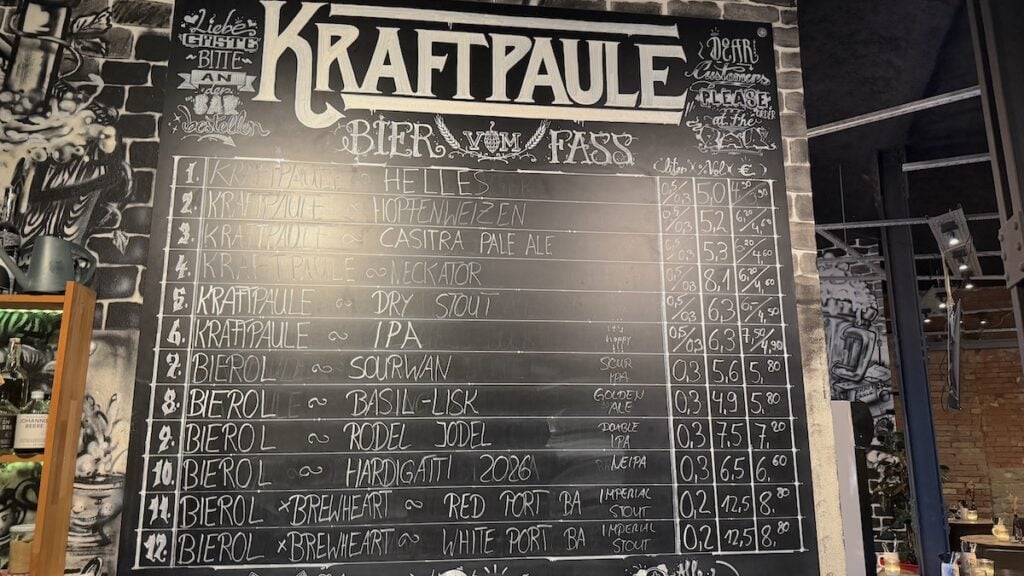 Liebe
GÄSTE
BITTE
AN
der
BAR
bestellen
KRAFTPAULE
DEAR
Customers
PLEASE
ORDER
at the
BIER VOM FASS
Liter % Vol €
1. KRAFTPAULE ~ HELLES 0,5/0,3 5,0
2. KRAFTPAULE ~ HOPFENWEIZEN 0,5/0,3 5,2
3. KRAFTPAULE ~ CASITRA PALE ALE 0,5/0,3 5,3 6,20/4,60
4. KRAFTPAULE ~ NECKATOR 0,5/0,3 8,1
5. KRAFTPAULE ~ DRY STOUT 0,5/0,3 6,3
6. KRAFTPAULE ~ IPA it's hoppy 0,5/0,3 6,3 7,50/4,90
7. BIEROL ~ SOURWAN SOUR IPA 0,3 5,6 5,80
8. BIEROL ~ BASIL-LISK GOLDEN ALE 0,3 4,9 5,80
9. BIEROL ~ RODEL JODEL DOUBLE IPA 0,3 7,5 7,20
10. BIEROL ~ HARDIGATTI 2026 NEIPA 0,3 6,5 6,60
11. BIEROL × BREWHEART ~ RED PORT BA IMPERIAL STOUT 0,2 12,5 8,80
12. BIEROL × BREWHEART ~ WHITE PORT BA IMPERIAL STOUT 0,2 12,5 8,80
JOHANNIS
BEERE